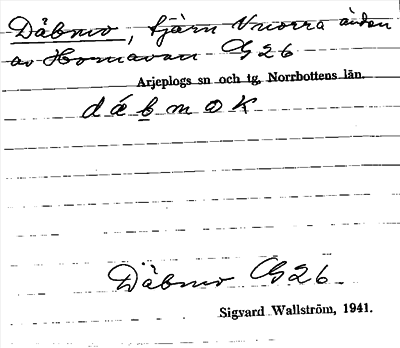 Däbmo, tjärn V norra änden
av Hornavan G26
Arjeplogs sn och tg, Norrbottens län.
dǽb̲mok
Däbmo G26
Sigvard Wallström, 1941.